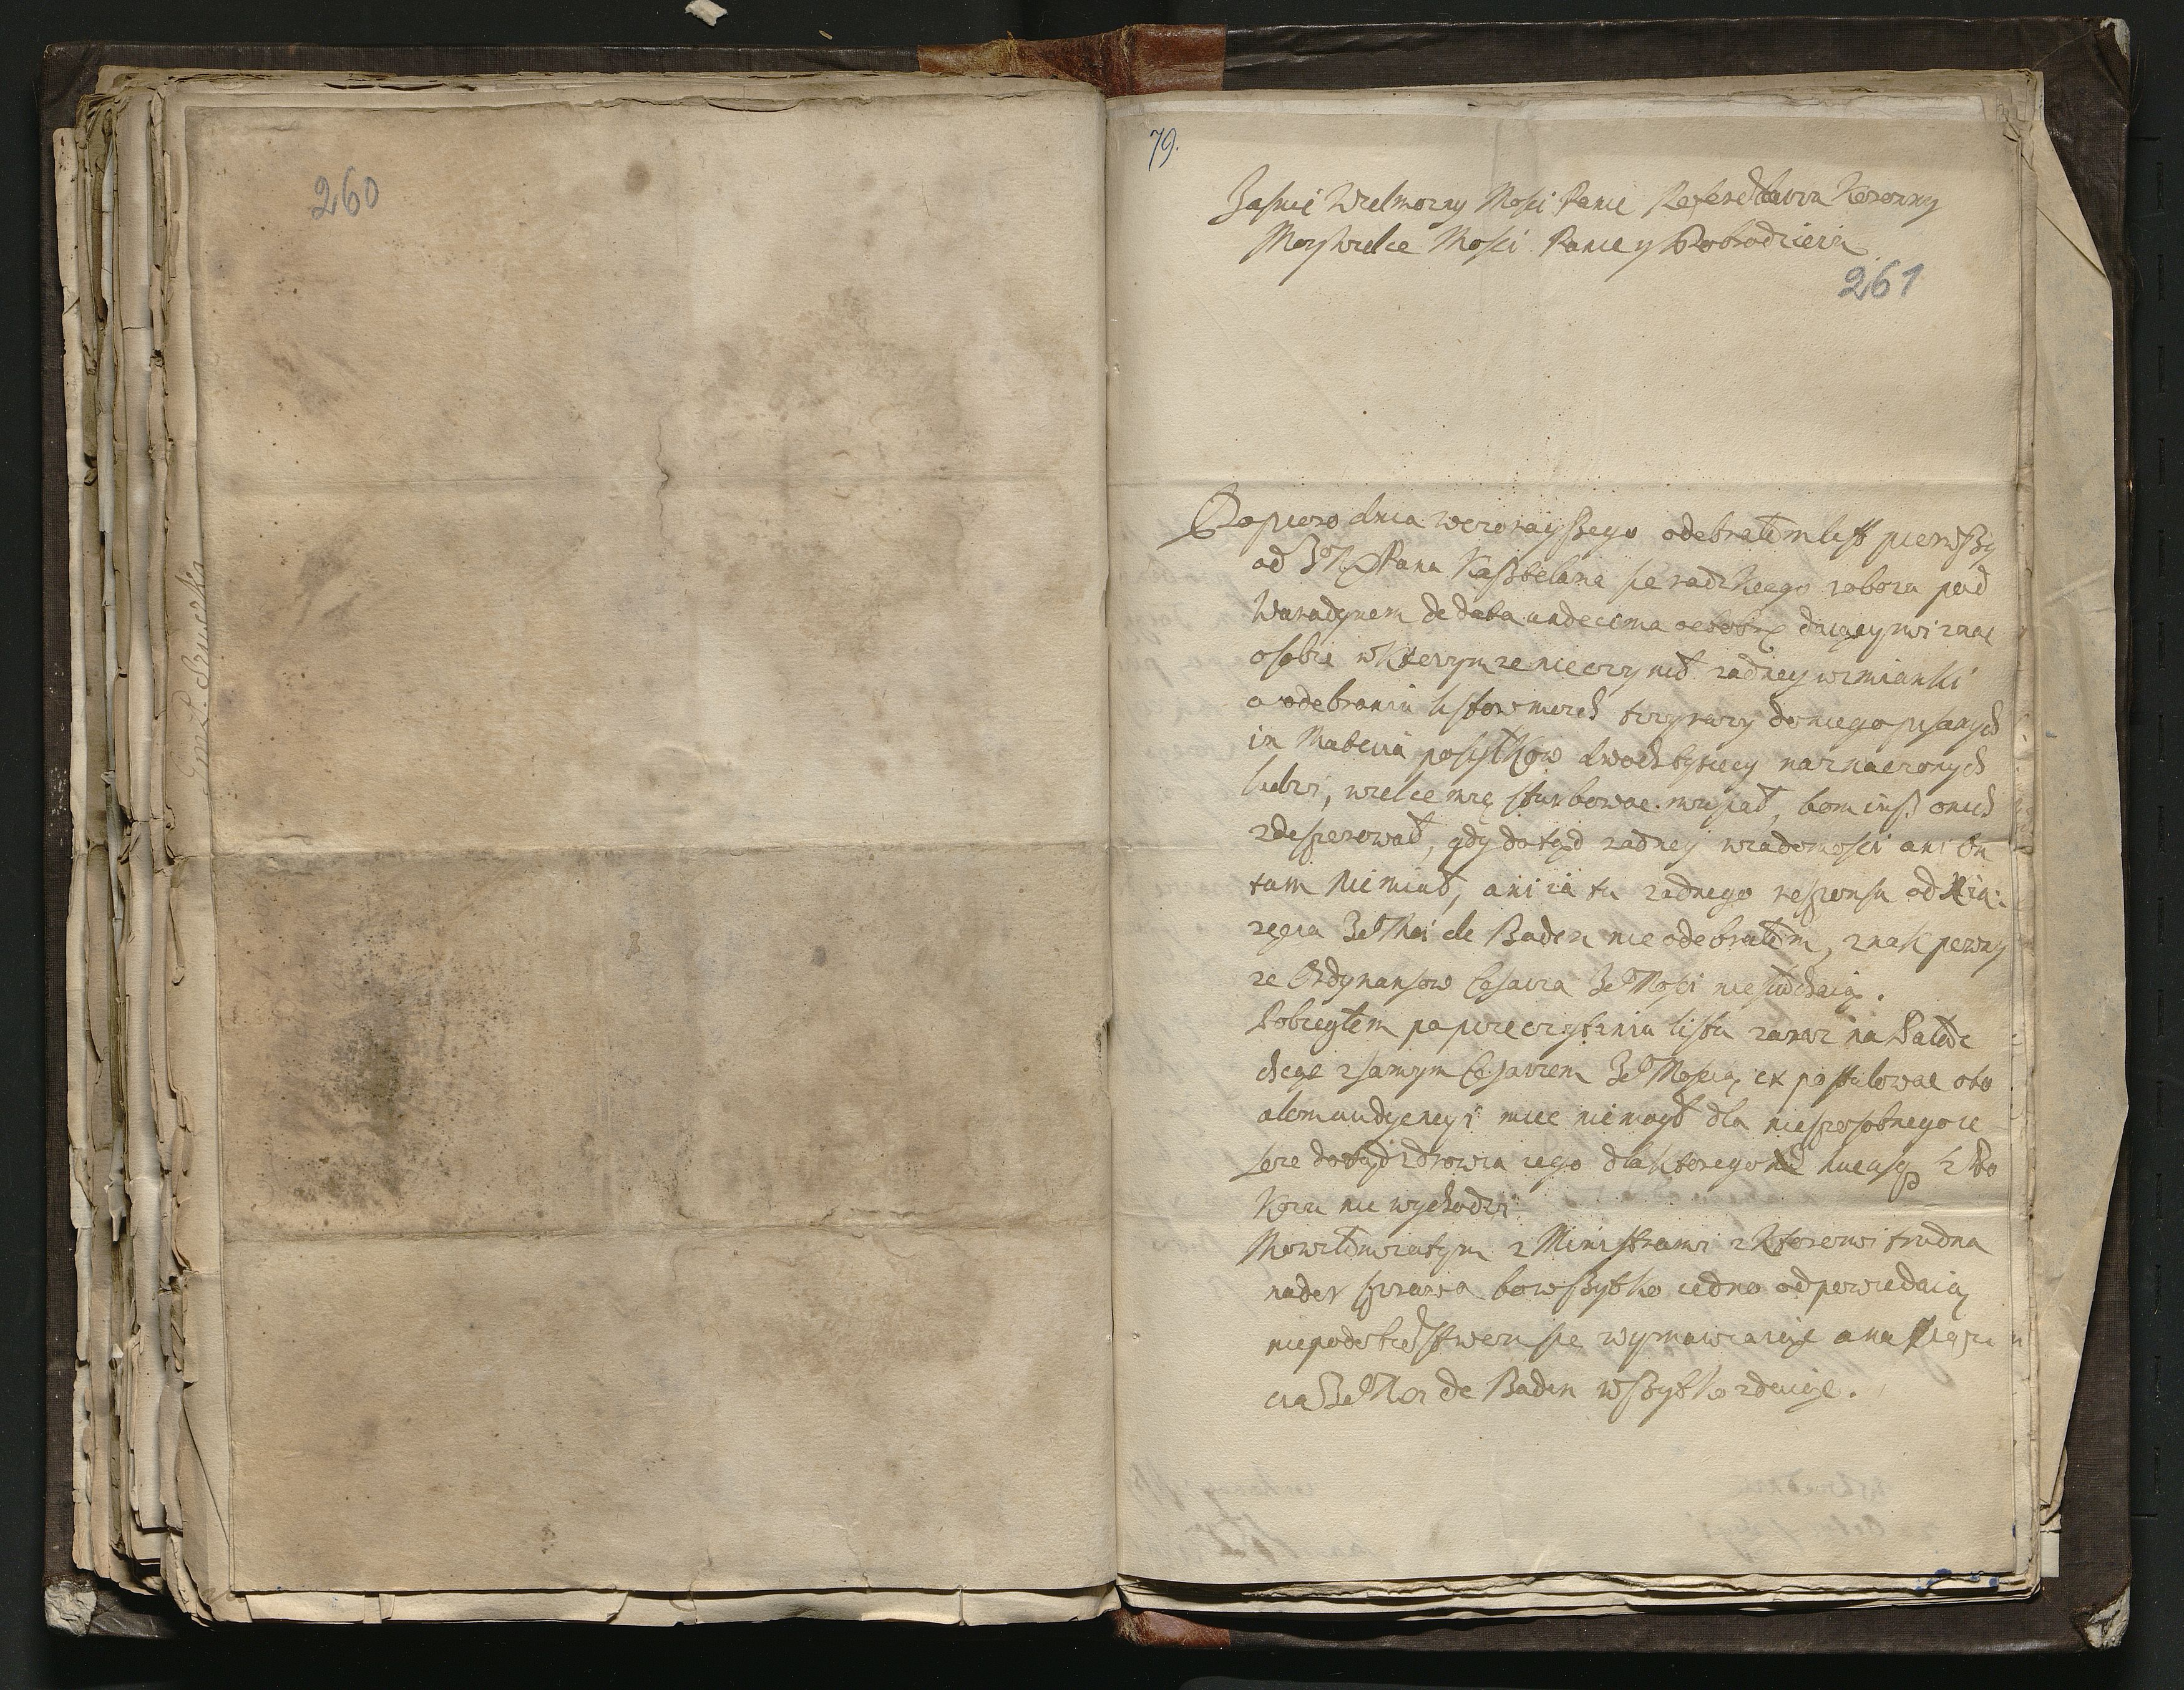 260
79.
Jasnie Wielmozny Mosci Panie Referendarzu Koronny
Moy Wielce Mosci Panie y Dobrodzieiu
261
Dopiero dnia wczorayszego odebrałem list pierwszy
od JeMPana Kasztelana sieradzkiego z obozu pod
Waradynem de data undecima octobr daiący mi znac
o sobie w ktorym ze nie czynił zadney wzmianki
o odebraniu listow moich trzy razy do niego pisanych
in Materia posiłkow dwoch tysięcy naznaczonych
ludzi, wielce mię sturbowac musiał, bom iusz o nich
zdesperował, gdy dotąd zadney wiadomosci ani On
tam nie miał, ani ia tu zadnego responsu od Xią:
zęcia JeoMci de Baden nie odebrałem, znak pewny
ze Ordynansow Cesarza JeoMosci nie słuchaią.
Pobiegłem po przeczytaniu listu zaraz na Pałac
chcąc z samym Cesarzem JeoMoscią expostulowac oto
alem audyencyi miec nie mogł dla niesposobnego ie
szcze dotąd zdrowia iego dla ktorego z Po
koiu nie wychodzi
Mowiłem o tym z Ministrami z ktoremi trudna
nader sprawa bo wszytko iedno odpowiedaią
niepodobieństwem się wymawiaiąc a na Xiąze
cia JeoMci de Baden wszytko zdaiąc.